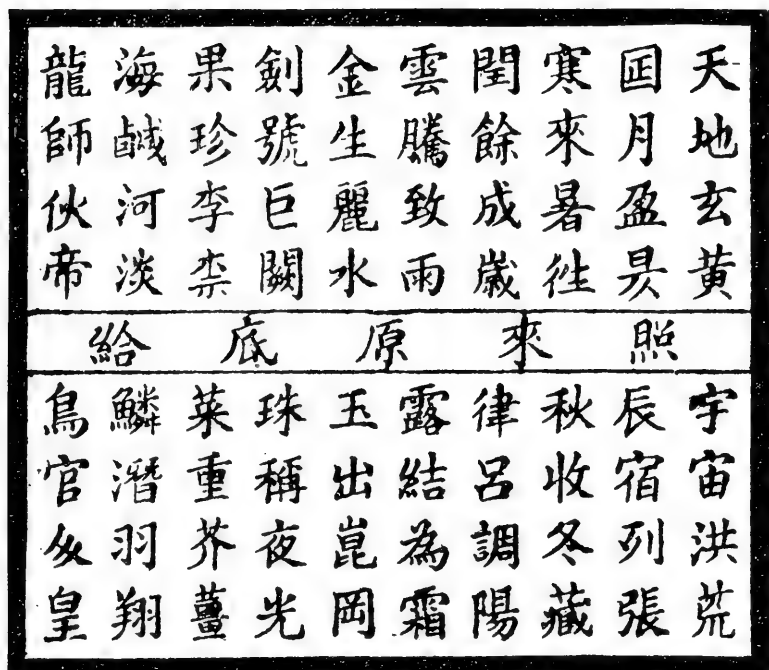 天地玄黃
囸月盈昃
寒來暑徃
閏餘成嵗
雲騰致雨
金生麗水
劍號巨闕
果珍李柰
海鹹河淡
龍師伙帝
照來原底給
宇宙洪荒
辰宿列張
秋收冬藏
律呂調陽
露結為霜
玉出崑岡
珠稱夜光
菜重芥薑
鱗潛羽翔
鳥官人皇